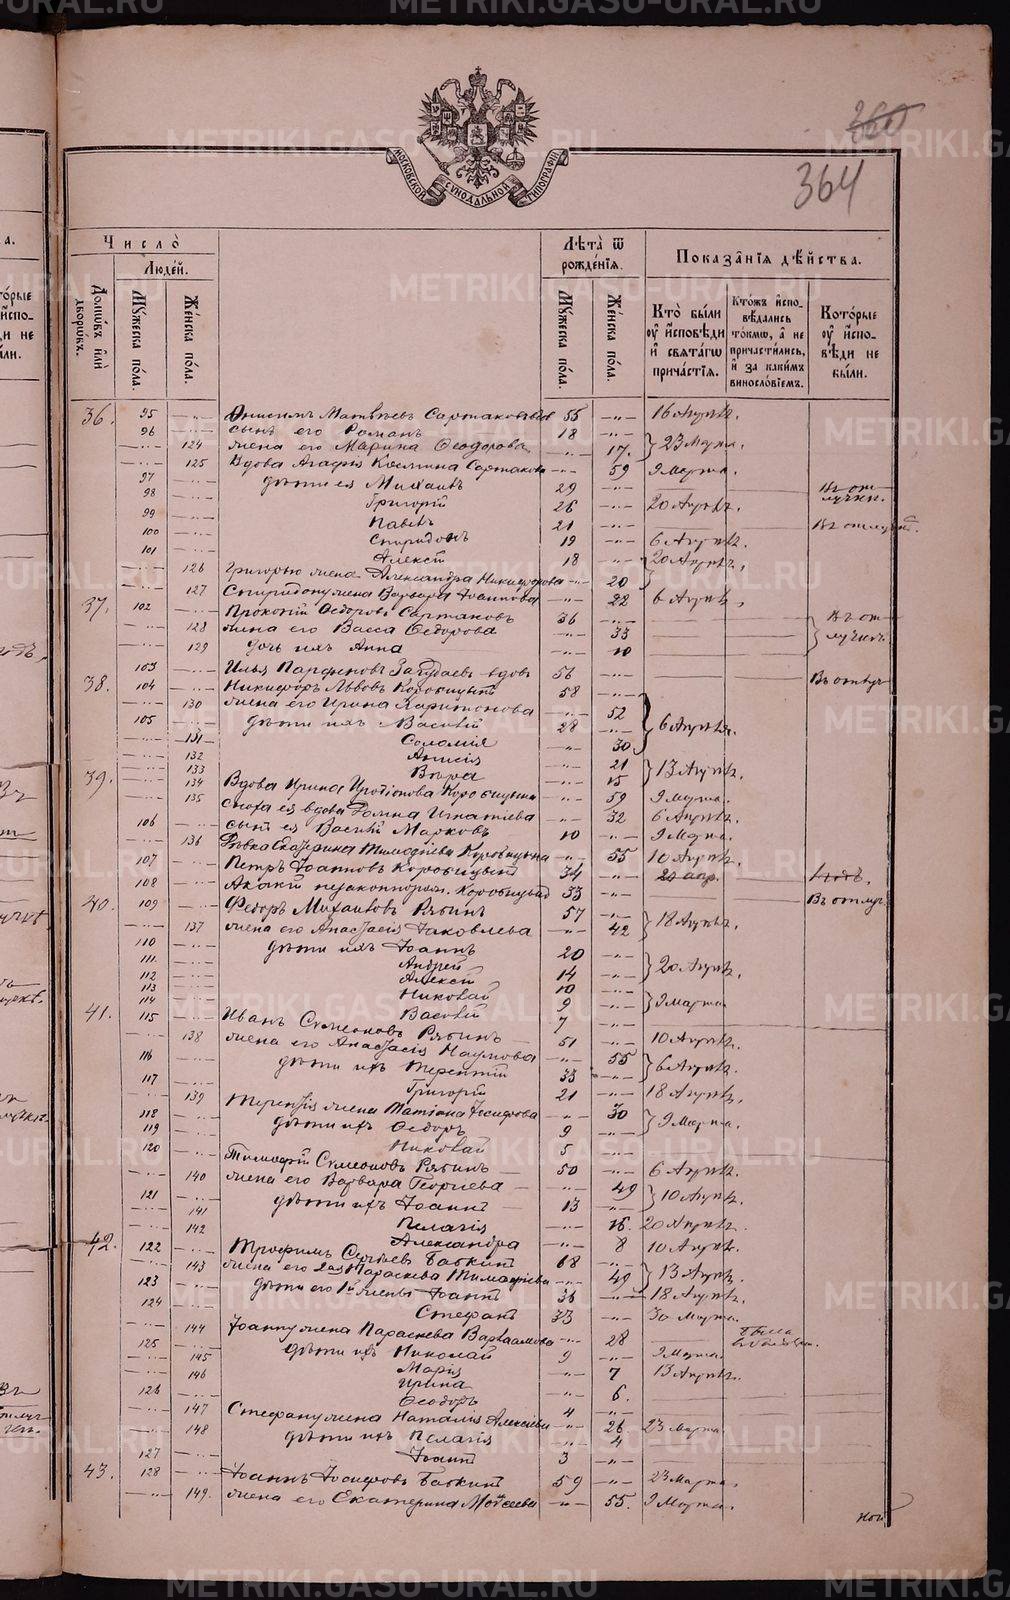 360
364
МОСКОВСКОЙ СѴНОДАЛЬНОЙ ТИПОГРАФІИ
Число̀
Людей.
Лѣта̀ ѿ рожденїѧ.
Показанїѧ дѣйства.
Домѡвъ илѝ дворѡвъ.
Мꙋжеска пола.
Женска пола.
Мꙋжеска пола.
Женска пола.
Кто̀ были оу҆ исповѣди и҆ свѧтагѡ причастїѧ.
Ктожъ исповѣдались токмѡ, а҆ не причастились, и҆ за какимъ винословїемъ.
Которые оу҆ исповѣди не были.
36. 95 Онисимъ Матвѣевъ Сартаковъ вдов 55 16 Апрѣл.
96 сынъ его Романъ 18
124 жена его Марина Ѳеодорова 17. 23 Марта.
125 Вдова Агафія Космина Сартакова 59 9 Марта.
97 дѣти ея Михаилъ 29 Въ отлучкѣ.
98 Григорій 26 20 Апрѣл.
99 Павелъ 21 Въ отлуч.
100 Спиридонъ 19 6 Апрѣл.
101 Алексѣй 18 20 Апрѣл.
126 Григорью жена Александра Никифорова 20
127 Спиридону жена Варвара Іоаннова 22 6 Апрѣл.
37. 102 Прокопій Ѳедоровъ Сартаковъ 36 Въ отлучкѣ.
128 жена его Васса Ѳедорова 33
129 дочь ихъ Анна 10
103 Илья Парфеновъ вдовъ 56 Въ отлуч
38. 104 Никифоръ Львовъ Коробицынъ 58
130 жена его Ирина Харитонова 52 6 Апрѣл.
105 дѣти ихъ Василій 28
131 Соломія 30
132 Анисія 21 13 Апрѣл.
133 Вѣра 15
39. 134 Вдова Ирина Коробицына 59 9 Марта.
135 Сноха ея вдова Домна Игнатіева 32 6 Апрѣл.
106 сынъ ея Василій Марковъ 10 9 Марта.
136 Дѣвка Екатерина Тимофѣева Коробицына 55 10 Апрѣл.
107 Петръ Іоанновъ Коробицынъ 34 20 апр.
108 Акакій незаконнорожд. Коробицынъ 33 Въ отлуч
40. 109 Ѳедоръ Михаиловъ Рябинъ 57 18 Апрѣл.
137 жена его Анастасія Іаковлева 42
110 дѣти ихъ Іоаннъ 20
111 Андрей 14 20 Апрѣл.
112 Алексѣй 10
113 Николай 9 9 Марта
114 Василій 7
41. 115 Иванъ Симеоновъ Рябинъ 51 10 Апрѣл.
138 жена его Анастасія Наумова 55 6 Апрѣл.
116 дѣти ихъ Терентій 33
117 Григорій 21 18 Апрѣл.
139 Терентія жена Татіана Іосифова 30 9 Марта.
118 дѣти ихъ Ѳедоръ 9
119 Николай 5
120 Тимофей Симеоновъ Рябинъ 50 6 Апрѣл.
140 жена его Варвара Георгіева 49 10 Апрѣл.
121 дѣти ихъ Іоаннъ 13
141 Пелагія 16. 20 Апрѣл.
142 Александра 8 10 Апрѣл.
42. 122 Трофимъ Сергѣевъ Бабкинъ 68
143 жена его 2ая Параскева Тимофіева 49 13 Апрѣл.
123 дѣти его 1й жены Іоаннъ 36 18 Апрѣл.
124 Стефанъ 33 30 Марта.
144 Іоанну жена Параскева Варлаамова 28 была
125 дѣти ихъ Николай 9 9 Марта
145 Марія 7 13 Апрѣл.
146 Ирина 6.
126 Ѳеодоръ 4
147 Стефану жена Наталія Алексѣева 26 23 Марта
148 дѣти ихъ Пелагія 4
127 Іоаннъ 3
43. 128 Іоаннъ Іосифовъ Бабкинъ 59 23 Марта.
149. жена его Екатерина Моѵсеева 55. 9 Марта.
METRIKI.GASO-URAL.RU